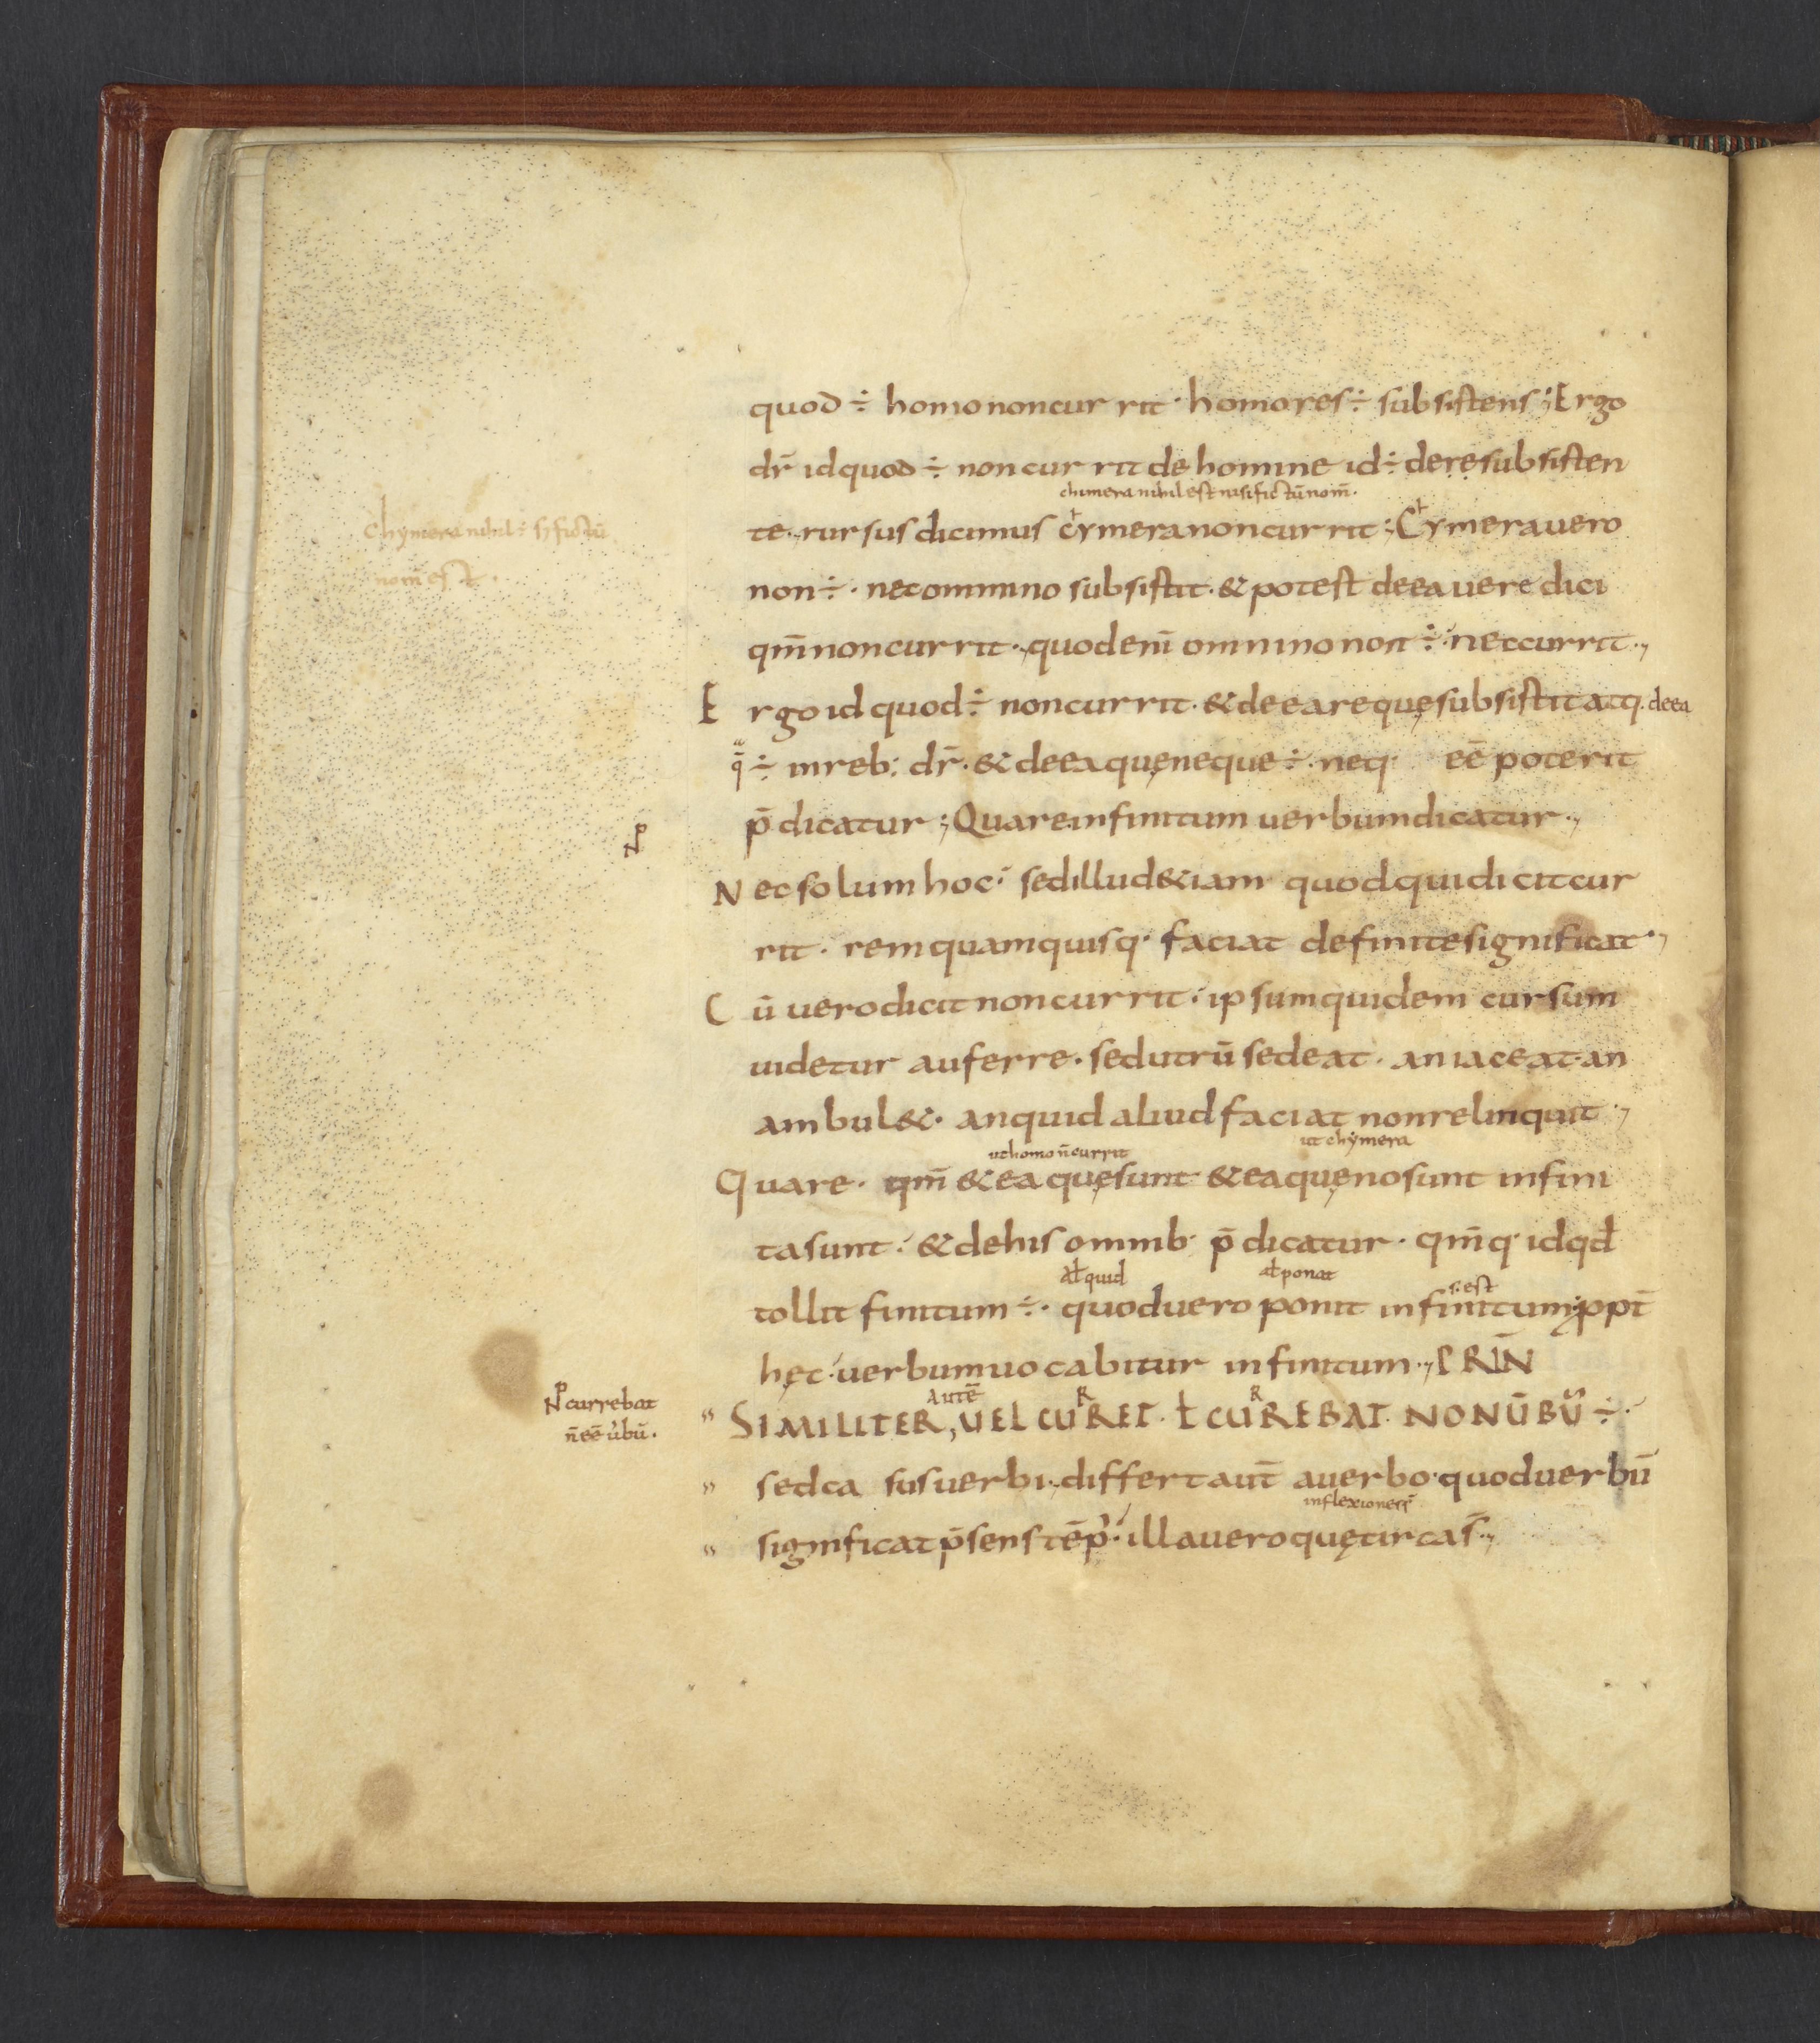 quod ÷ homo non currit · homo res ÷ subsistens ; Ergo
dr̄ id quod ÷ non currit de homine id ÷ de rę subsisten
chimera nihil est nisi fictū nom̄ ·
te · rursus dicimus cymera non currit ; Cymera uero
chymera nihil ÷ fictū
nom̄ est ·
non ÷ · nec omnino subsistit · & potest de ea uere dici
qm̄ non currit · quod eni̅ omnino non ÷ · nec currit ·,
Ergo id quod ÷ non currit · & de ea re quę subsistit atq · de ea
q̄ ÷ in reb: dr̄ · & de ea quę neque ÷ · neq · eē poterit
p̄dicatur ; Quare infinitum uerbum dicatur ·,
Nec solum hoc · sed illud &iam quod qui dicit cur
rit · rem quam quisq · faciat definite significat ·,
Cū uero dicit non currit · ipsum quidem cursum
uidetur auferre · sed utrū sedeat · an iaceat · an
ambul& · an quid aliud faciat non relinquit ·,
ut homo n̄ currit   ut chymera
Quare · qm̄ & ea quę sunt & ea quę no sunt infini
ta sunt · & de his omnib · p̄dicatur · qm̄q · id qd
aƚ quid   aƚ ponat   s · est
tollit finitum ÷ · quod uero ponit infinitum ; ppt̄
hęc · uerbum uocabitur infinitum ·, PRIN̄
autē   R   R
SIMILITER, UEL CURET · ƚ CUREBAT · NON ŪBŪ ÷ ·
currebat
n̄ eē ubū ·
sed casus uerbi · differt aut̄ a uerbo · quod uerbū
inflexiones
significat p̄sens tēp · illa uero quę circa s̄ ·,